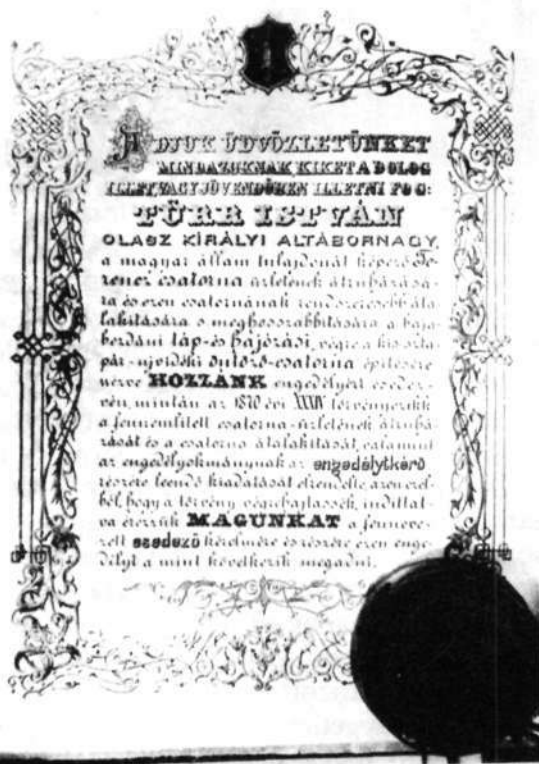 ADJUK ÜDVÖZLETÜNKET
MINDAZOKNAK KIKET A DOLOG
ILLET, VAGY JÖVENDŐBEN ILLETNI FOG:
TÜRR ISTVÁN
OLASZ KIRÁLYI ALTÁBORNAGY,
a magyar állam tulajdonát képező Fe-
rencz csatorna üzletének átruházásá-
ra és ezen csatornának rendszeresebb áta-
lakitására s meghosszabbitására a baja-
bezdáni táp-és hajózási, végre a kisszta-
pár-ujvidéki öntöző-csatorna épitésére
nézve HOZZÁNK engedélyért esedez-
vén, miután az 1870 évi XXXIV törvényczikk
a fennemlített csatorna-üzletének átruhá-
zását és a csatorna átalakitását, valamint
az engedélyokmánynak az engedélytkérő
részére leendő kiadatását elrendelte, azon czél-
ból, hogy a törvény végrehajtassék, indíttat-
va érezzük MAGUNKAT a fennneve-
zett esedező kérelmére és részére ezen enge-
délyt a mint következik megadni.